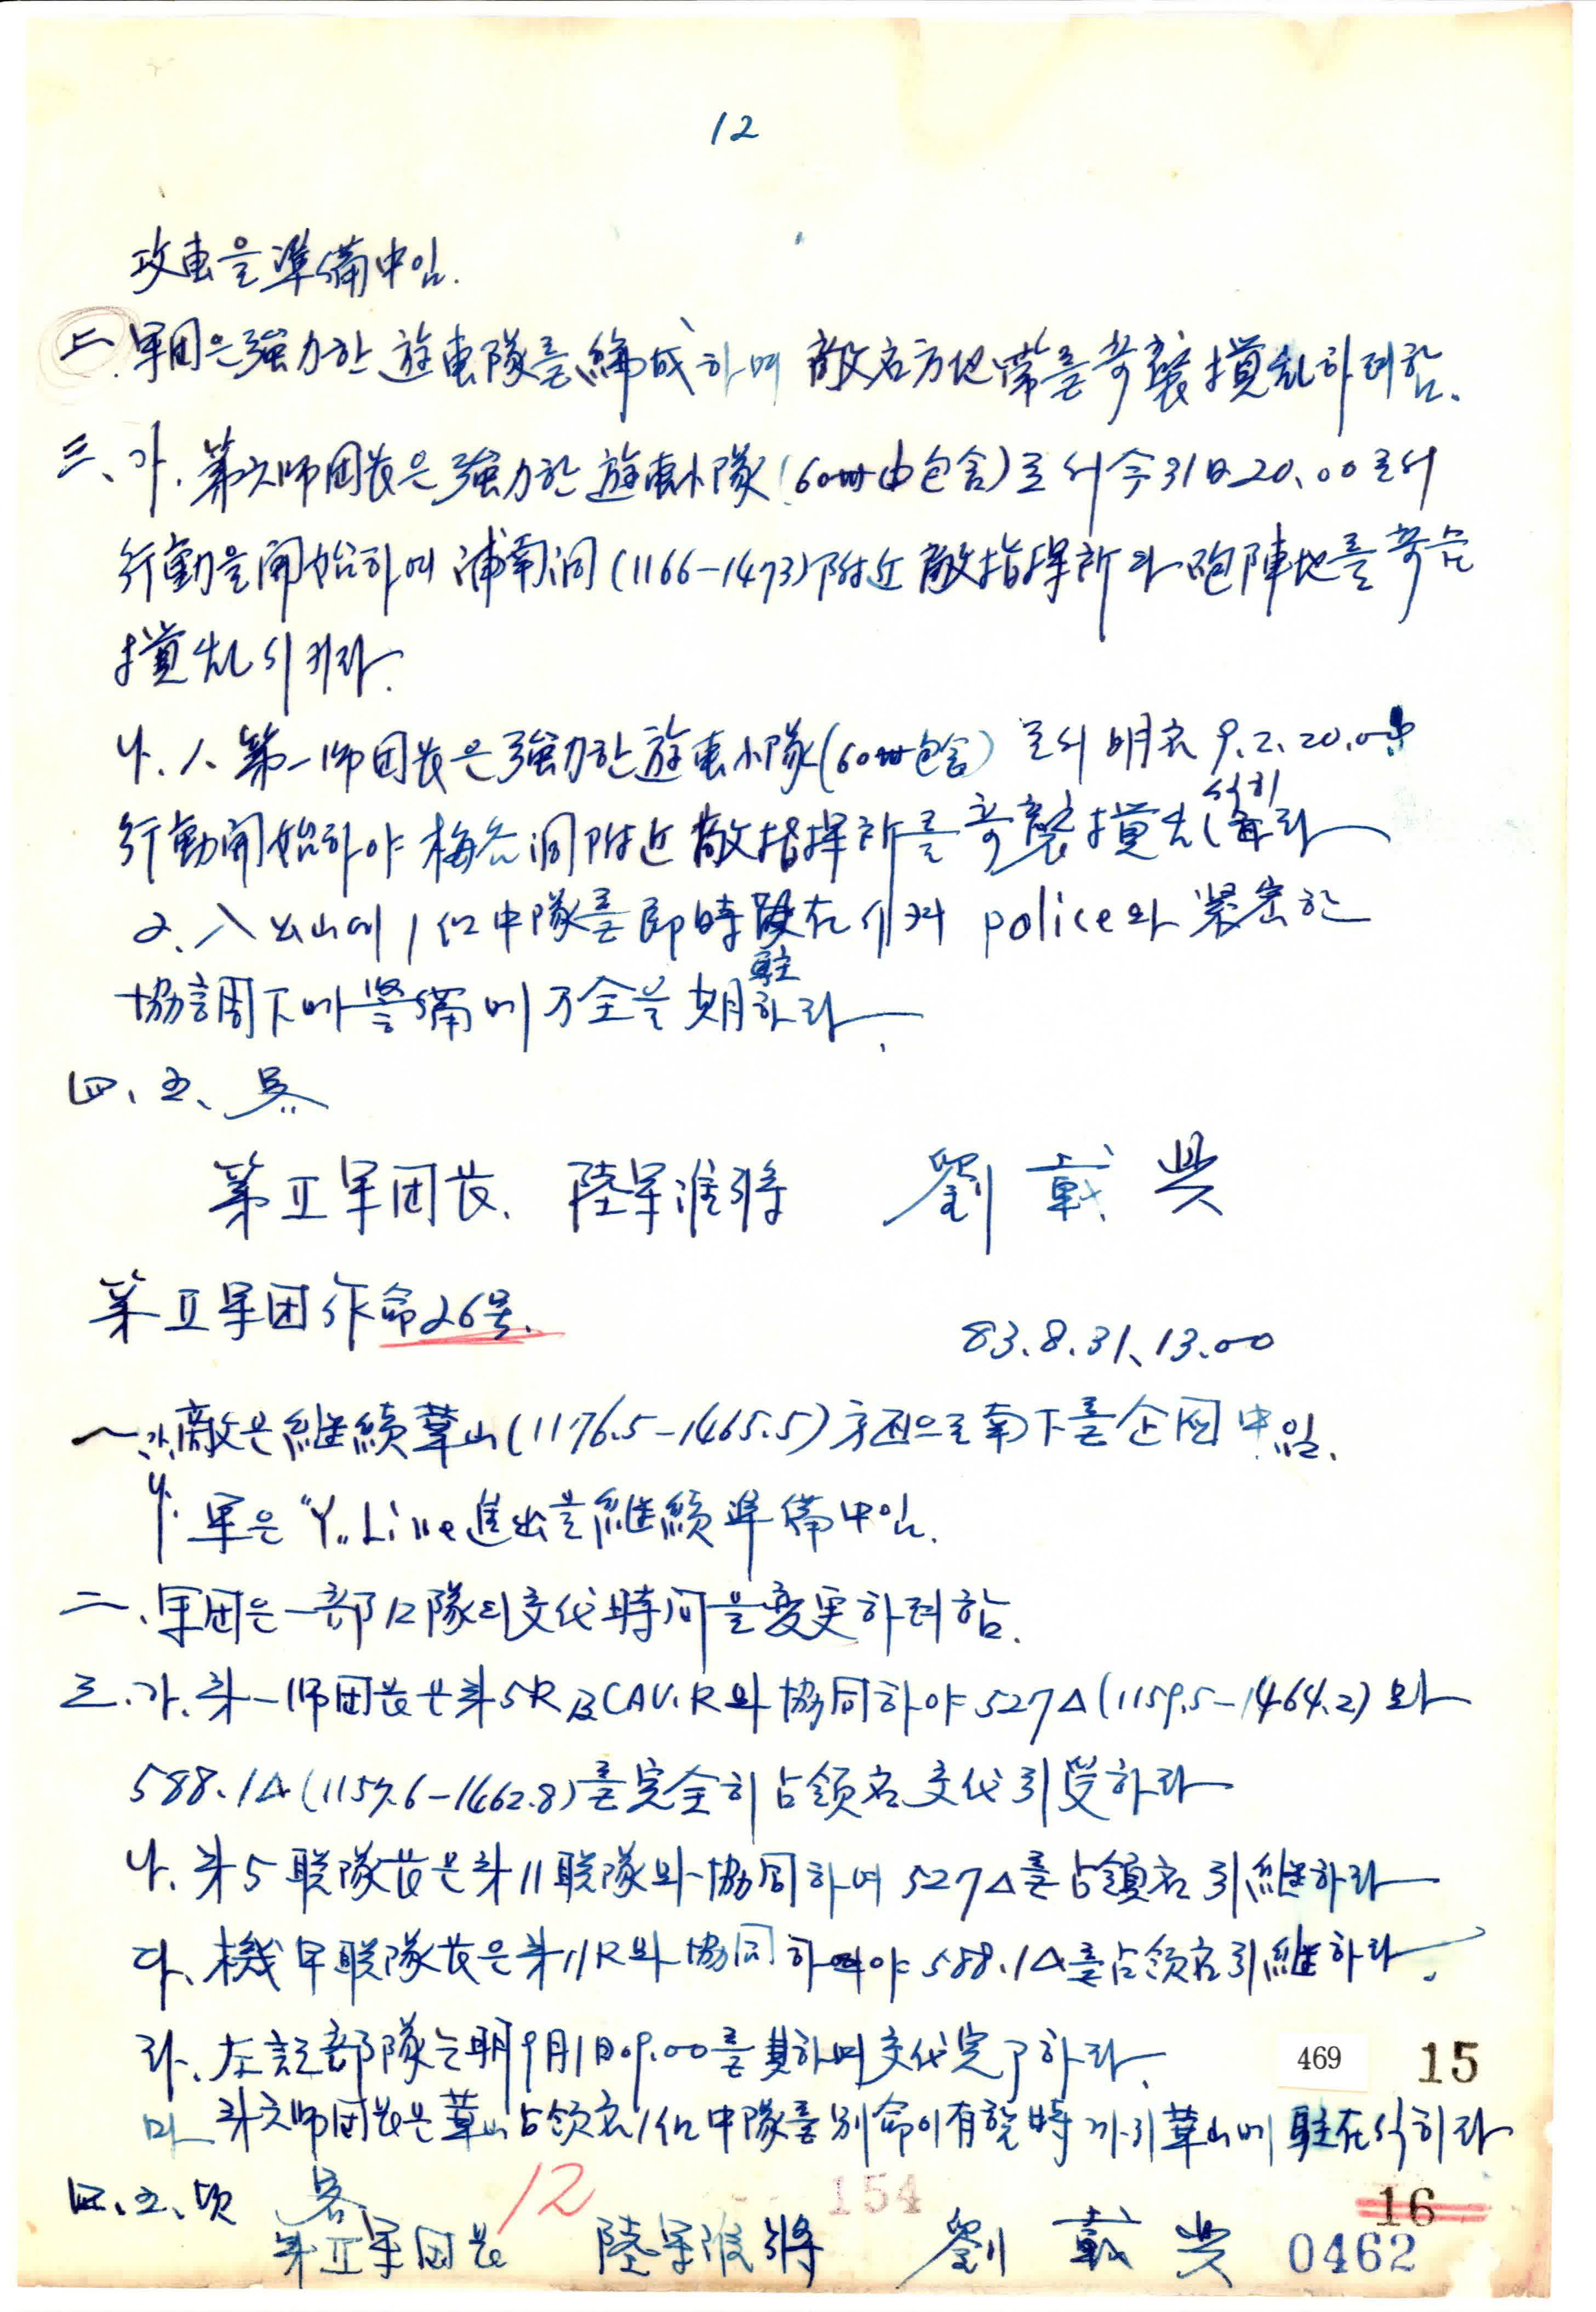 12
攻軍을 準備中임.
二. 軍団은 強力한 遊軍隊를 編成하며 敵右方地帶를 奇襲 攪乱하려함.
三、가. 第六師団長은 強力한 遊軍小隊(60㎜包含)로서 今31日20.00로서
行動을 開始하여 浦南洞(1166-1473)附近 敵指揮所와 砲陣地를 奇습
攪乱시키라.
나. 1. 第一師団長은 強力한 遊軍小隊(60㎜包含)로서 明夜 9.2.20.00
行動開始하야 梅谷洞附近 敵指揮所를 奇襲攪乱식히라
2. 八公山에 1個中隊를 即時 駐在시켜 police와 緊密한
協調下에 警備에 万全을 期하라.
四、五、略
第Ⅱ軍団長. 陸軍准将 劉載興
第Ⅱ軍団作命26号.
83.8.31、13.00
一.가. 敵은 継続 華山(1176.5-1465.5)方面으로 南下를 企図中임.
나. 軍은 "Y" Line 進出을 継続 準備中임.
二、軍団은 一部 部隊의 交代時间을 変更하려함.
三.가. 第一師団長은 第5R 及 CAV.R와 協同하야 527△(1159.5-1464.2)와
588.1△(1157.6-1462.8)를 完全히 占領后 交代引受하라
나. 第5聯隊長은 第11聯隊와 協同하여 527△를 占領后 引継하라
다. 機甲聯隊長은 第11R와 協同하야 588.1△를 占領后 引継하라.
라. 左記部隊는 明9月1日09.00를 期하여 交代完了하라.
마 第六師団長은 華山占領后 1個中隊를 別命이 有할 時까지 華山에 駐在식히라
四.五.項 略
第Ⅱ軍団長 陸軍准将 劉載興
469
15
12
154
16
0462